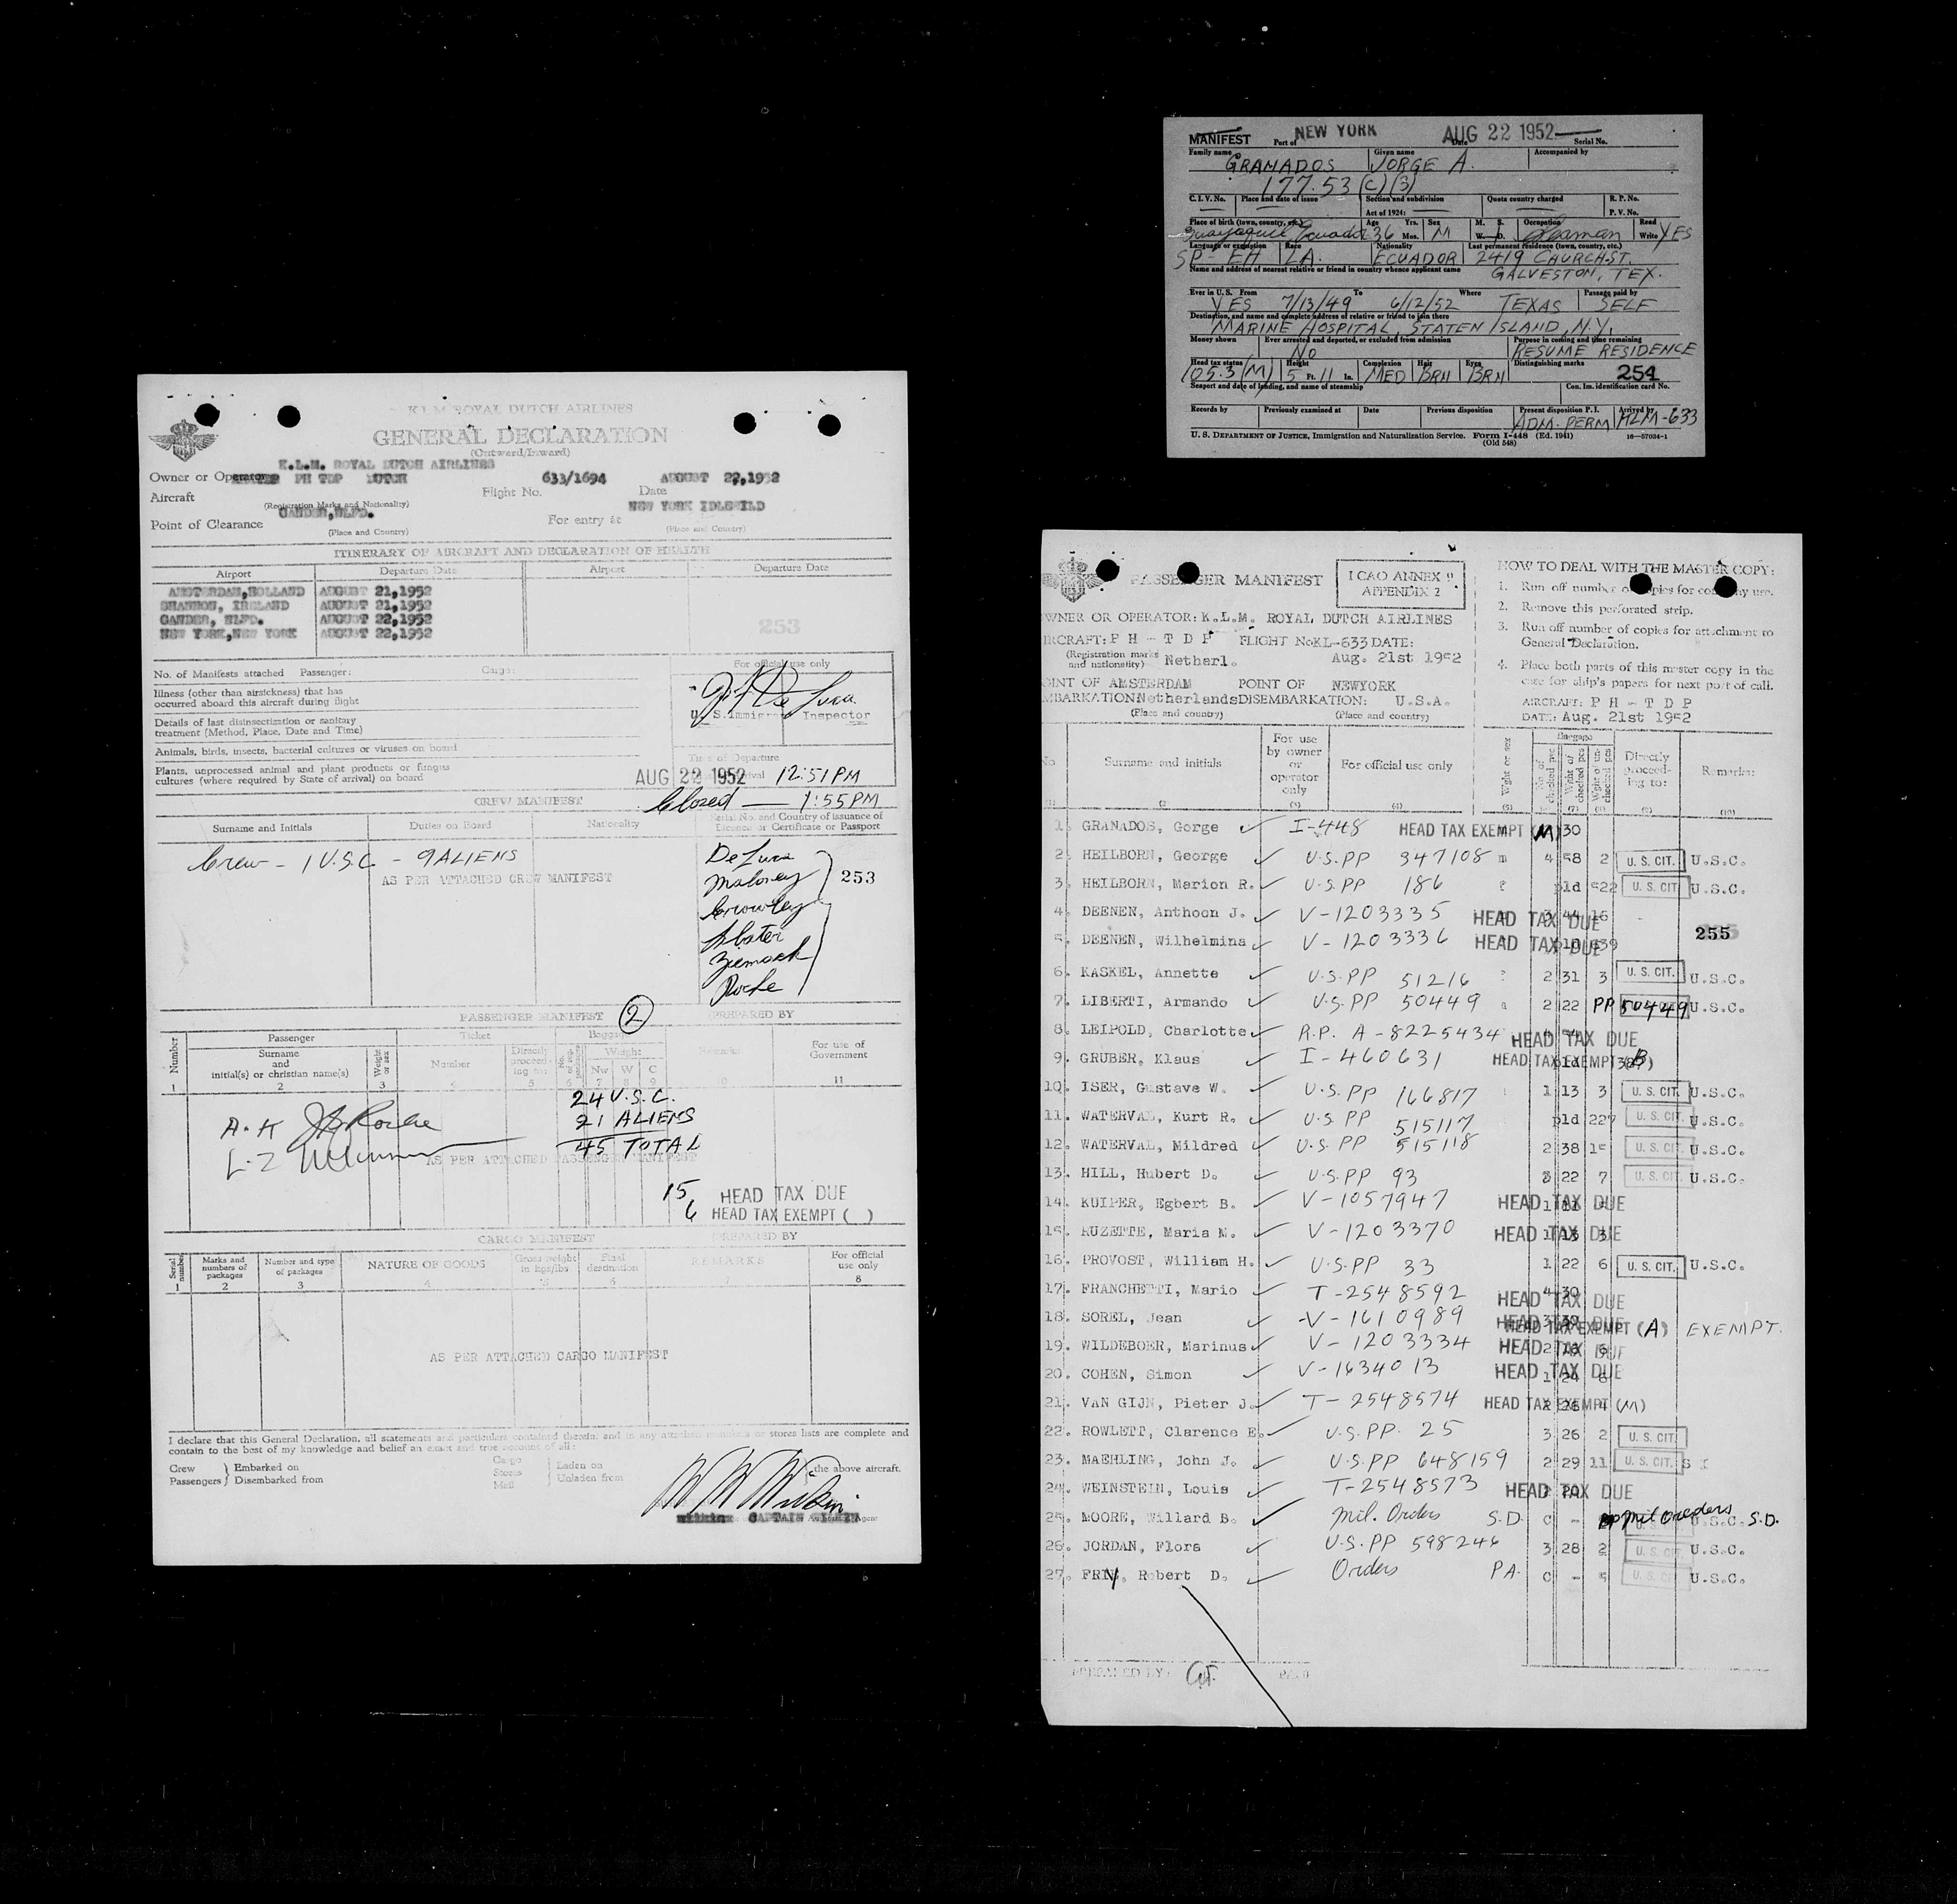 K.L.M. ROYAL DUTCH AIRLINES
GENERAL DECLARATION
(Outward/Inward)
K.L.M. ROYAL DUTCH AIRLINES
Owner or Operator
PH TDP DUTCH
633/1694
AUGUST 22,1952
Aircraft
Flight No.
Date
(Registration Marks and Nationality)
GANDER,NLFD.
NEW YORK IDLEWILD
Point of Clearance
For entry at
(Place and Country)
(Place and Country)
ITINERARY OF AIRCRAFT AND DECLARATION OF HEALTH
Airport Departure Date Airport Departure Date
AMSTERDAM,HOLLAND AUGUST 21,1952
SHANNON, IRELAND AUGUST 21,1952
GANDER, NLFD. AUGUST 22,1952
NEW YORK,NEW YORK AUGUST 22,1952
253
No. of Manifests attached Passenger: Cargo:
For official use only
Illness (other than airsickness) that has
occurred aboard this aircraft during flight
U. S. Immigr Inspector
Details of last disinsectization or sanitary
treatment (Method, Place, Date and Time)
Animals, birds, insects, bacterial cultures or viruses on board
Plants, unprocessed animal and plant products or fungus
cultures (where required by State of arrival) on board
Time of Departure
AUG 22 1952 12:51 PM
Closed — 1:55 PM
CREW MANIFEST
Surname and Initials Duties on Board Nationality
Serial No. and Country of issuance of
Licence or Certificate or Passport
Crew - 1 U.S.C - 9 ALIENS
AS PER ATTACHED CREW MANIFEST
De Luca
Maloney
253
Crowley
Roche
PASSENGER MANIFEST
2
PREPARED BY
Number
Passenger
Ticket
Baggage
Surname
and
initial(s) or christian name(s)
Weight or sex
Number
Directly
proceed-
ing to:
Weight
Nw W C
Remarks
For use of
Government
1 2 3 4 5 6 7 8 9 10 11
24 U.S.C.
21 ALIENS
45 TOTAL
A.K
L.Z
AS PER ATTACHED PASSENGER MANIFEST
15 HEAD TAX DUE
6 HEAD TAX EXEMPT ( )
CARGO MANIFEST
PREPARED BY
Serial number
Marks and
numbers of
packages
Number and type
of packages
NATURE OF GOODS
Gross weight
in kgs/lbs
Final
destination
REMARKS
For official
use only
1 2 3 4 5 6 7 8
AS PER ATTACHED CARGO MANIFEST
I declare that this General Declaration, all statements and particulars contained therein, and in any attached manifests or stores lists are complete and
contain to the best of my knowledge and belief an exact and true account of all:
Crew
Passengers
Embarked on
Disembarked from
Cargo
Stores
Mail
Laden on
Unladen from
the above aircraft.
CAPTAIN
Agent
MANIFEST
Port of NEW YORK
AUG 22 1952
Date
Serial No.
Family name Given name Accompanied by
GRANADOS JORGE A.
177.53 (C) (3)
C. I. V. No. Place and date of issue Section and subdivision Quota country charged R. P. No.
Act of 1924: P. V. No.
Place of birth (town, country, etc.) Age Yrs. Sex M. S. Occupation Read
Guayaquil Ecuador 36 Mos. M W. D. Seaman Write YES
Language or exemption Race Nationality Last permanent residence (town, country, etc.)
SP - EH LA. ECUADOR 2419 CHURCH-ST.
Name and address of nearest relative or friend in country whence applicant came
GALVESTON, TEX.
Ever in U. S. From To Where Passage paid by
YES 7/13/49 6/12/52 TEXAS SELF
Destination, and name and complete address of relative or friend to join there
MARINE HOSPITAL, STATEN ISLAND, N.Y.
Money shown Ever arrested and deported, or excluded from admission Purpose in coming and time remaining
NO RESUME RESIDENCE
Head tax status Height Complexion Hair Eyes Distinguishing marks
105.3 (M) 5 Ft. 11 In. MED BRN BRN
254
Seaport and date of landing, and name of steamship Con. Im. identification card No.
Records by Previously examined at Date Previous disposition Present disposition P. I. Arrived by
ADM. PERM KLM-633
U. S. DEPARTMENT OF JUSTICE, Immigration and Naturalization Service. Form I-448 (Ed. 1941)
(Old 548)
16—57034-1
PASSENGER MANIFEST
ICAO ANNEX 9
APPENDIX 2
HOW TO DEAL WITH THE MASTER COPY:
1. Run off number of copies for company use.
2. Remove this perforated strip.
3. Run off number of copies for attachment to
General Declaration.
4. Place both parts of this master copy in the
case for ship's papers for next port of call.
AIRCRAFT: P H - T D P
DATE: Aug. 21st 1952
OWNER OR OPERATOR: K.L.M. ROYAL DUTCH AIRLINES
AIRCRAFT: P H - T D P FLIGHT No KL-633 DATE:
(Registration marks
and nationality) Netherl. Aug. 21st 1952
POINT OF AMSTERDAM POINT OF NEWYORK
EMBARKATION Netherlands DISEMBARKATION: U.S.A.
(Place and country) (Place and country)
No
Surname and initials
For use
by owner
or
operator
only
For official use only
Weight or sex
Baggage
No. of checked pcs
Weight of checked pcs
Directly
proceed-
ing to:
Remarks:
1. GRANADOS, Gorge I-448 HEAD TAX EXEMPT (M) 30
2. HEILBORN, George U.S.PP 347108 m 4 58 2 U. S. CIT. U.S.C.
3. HEILBORN, Marion R. U.S.PP 186 pld 522 U. S. CIT. U.S.C.
4. DEENEN, Anthoon J. V-1203335 HEAD TAX DUE 3 44 16
5. DEENEN, Wilhelmina V-1203336 HEAD TAX DUE
255
6. KASKEL, Annette U.S.PP 51216 2 31 3 U. S. CIT. U.S.C.
7. LIBERTI, Armando U.S.PP 50449 2 22 PP 50449 U.S.C.
8. LEIPOLD, Charlotte R.P. A-8225434 HEAD TAX DUE
9. GRUBER, Klaus I-460631 HEAD TAX EXEMPT (B)
10. ISER, Gustave W. U.S.PP 166817 1 13 3 U. S. CIT. U.S.C.
11. WATERVAL, Kurt R. U.S PP 515117 pld 227 U. S. CIT. U.S.C.
12. WATERVAL, Mildred U.S.PP 515118 2 38 15 U. S. CIT. U.S.C.
13. HILL, Hubert D. U.S.PP 93 3 22 7 U. S. CIT. U.S.C.
14. KUIPER, Egbert B. V-1057947 HEAD TAX DUE
15. RUZETTE, Maria M. V-1203370 HEAD TAX DUE
16. PROVOST, William H. U.S.PP 33 1 22 6 U. S. CIT. U.S.C.
17. FRANCHETTI, Mario T-2548592 4 30 HEAD TAX DUE
18. SOREL, Jean V-1610989 HEAD TAX EXEMPT (A) EXEMPT.
19. WILDEBOER, Marinus V-1203334 HEAD TAX DUE
20. COHEN, Simon V-1634013 HEAD TAX DUE 1 24 8
21. VAN GIJN, Pieter J. T-2548574 HEAD TAX EXEMPT (M)
22. ROWLETT, Clarence E. U.S.PP. 25 3 26 2 U. S. CIT.
23. MAEHLING, John J. U.S.PP 648159 2 29 11 U. S. CIT.
24. WEINSTEIN, Louis T-2548573 HEAD TAX DUE
25. MOORE, Willard B. Mil. Orders S.D. C - Mil Orders U.S.C. S.D.
26. JORDAN, Flora U.S.PP 598246 3 28 2 U. S. CIT. U.S.C.
27. Robert D. Orders PA. C - 5 U. S. CIT. U.S.C.
PREPARED BY: